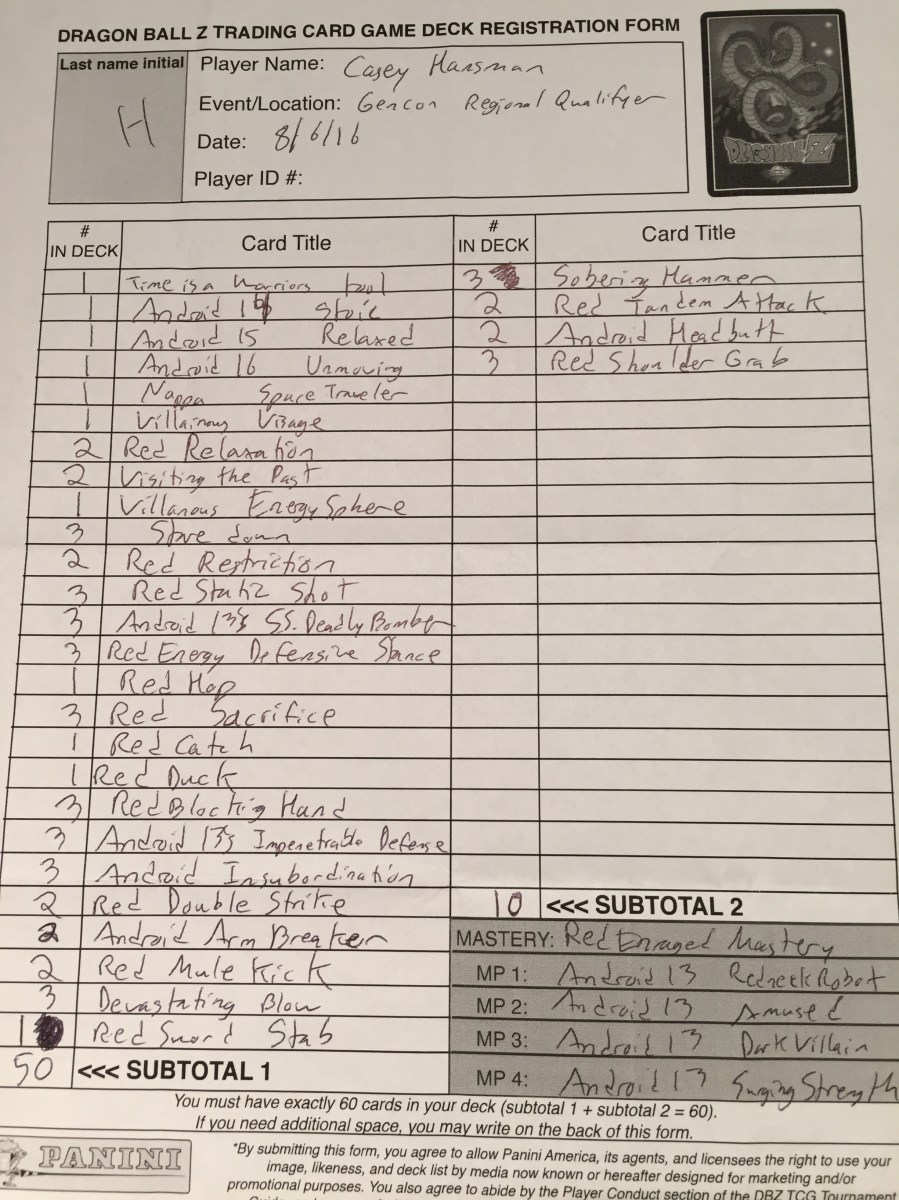 DRAGON BALL Z TRADING CARD GAME DECK REGISTRATION FORM
Last name initial
H
Player Name: Casey Hansman
Event/Location: Gencon Regional Qualifyer
Date: 8/6/16
Player ID #:
DRAGON BALL Z
# IN DECK Card Title
1 Time is a Warriors tool
1 Android 14 Stoic
1 Android 15 Relaxed
1 Android 16 Unmoving
1 Nappa Space Traveler
1 Villainous Visage
2 Red Relaxation
2 Visiting the Past
1 Villanous Energy Sphere
3 Stare down
2 Red Restriction
3 Red Static Shot
3 Android 13's S.S. Deadly Bomber
3 Red Energy Defensive Stance
1 Red Hop
3 Red Sacrifice
1 Red Catch
1 Red Duck
3 Red Blocking Hand
3 Android 13's Impenetrable Defense
3 Android Insubordination
2 Red Double Strike
2 Android Arm Breaker
2 Red Mule Kick
3 Devastating Blow
1 Red Sword Stab
50 <<< SUBTOTAL 1
# IN DECK Card Title
3 Sobering Hammer
2 Red Tandem Attack
2 Android Headbutt
3 Red Shoulder Grab
10 <<< SUBTOTAL 2
MASTERY: Red Enraged Mastery
MP 1: Android 13 Redneck Robot
MP 2: Android 13 Amused
MP 3: Android 13 Dark Villain
MP 4: Android 13 Surging Strength
You must have exactly 60 cards in your deck (subtotal 1 + subtotal 2 = 60).
If you need additional space, you may write on the back of this form.
PANINI
*By submitting this form, you agree to allow Panini America, its agents, and licensees the right to use your
image, likeness, and deck list by media now known or hereafter designed for marketing and/or
promotional purposes. You also agree to abide by the Player Conduct section of the DBZ TCG Tournament